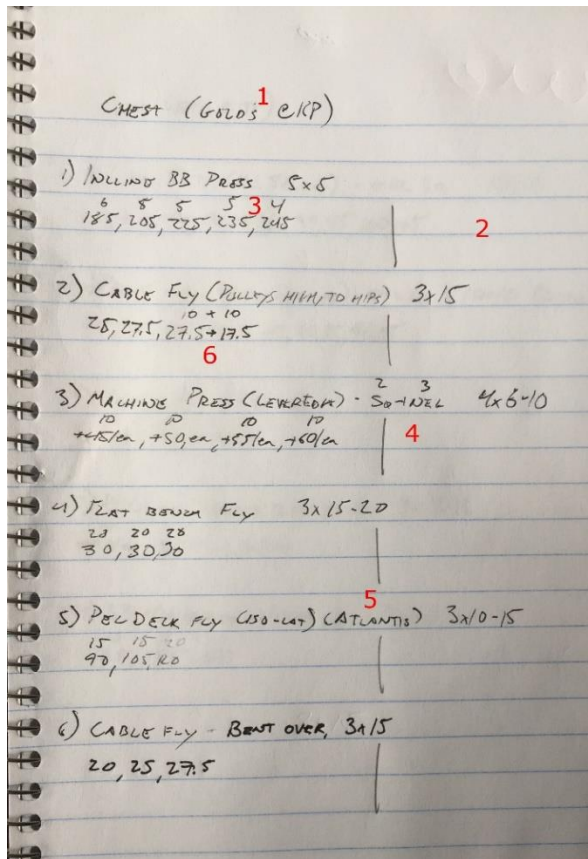 1
CHEST (GOLD'S CKP)
1) INCLINE BB PRESS 5x5
6 8 5 5 3 4
185, 205, 225, 235, 245
2
2) CABLE FLY (PULLEYS HIGH, TO HIPS) 3x15
10 + 10
25, 27.5, 27.5+17.5
6
2 3
3) MACHINE PRESS (LEVEREDGE) - 4x6-10
10 10 10 10
+45/ea, +50/ea, +55/ea, +60/ea
4
4) FLAT BENCH FLY 3x15-20
20 20 20
30, 30, 30
5
5) PEC DECK FLY (ISO-LAT) (ATLANTIS) 3x10-15
15 15 20
90, 105,
6) CABLE FLY - BENT OVER, 3x15
20, 25, 27.5